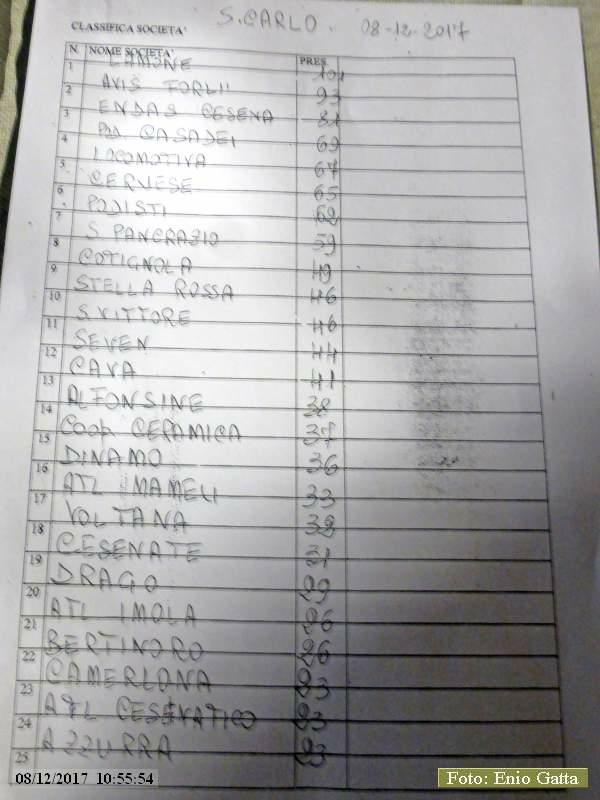 S. CARLO. 08-12-2017
CLASSIFICA SOCIETA'
N. NOME SOCIETA' PRES.
1 LAMONE 101
2 AVIS FORLI' 93
3 ENDAS CESENA 81
4 POD CASADEI 69
5 LOCOMOTIVA 67
6 CERVESE 65
7 PODISTI 62
8 S. PANCRAZIO 59
9 COTIGNOLA 49
10 STELLA ROSSA 46
11 S. VITTORE 46
12 SEVEN 44
13 CAVA 41
14 ALFONSINE 38
15 COOP CERAMICA 37
16 DINAMO 36
17 ATL MAMELI 33
18 VOLTANA 32
19 CESENATE 31
20 DRAGO 29
21 ATL IMOLA 26
22 BERTINORO 26
23 CAMERLONA 23
24 ATL CESENATICO 23
25 AZZURRA 23
08/12/2017 10:55:54
Foto: Enio Gatta